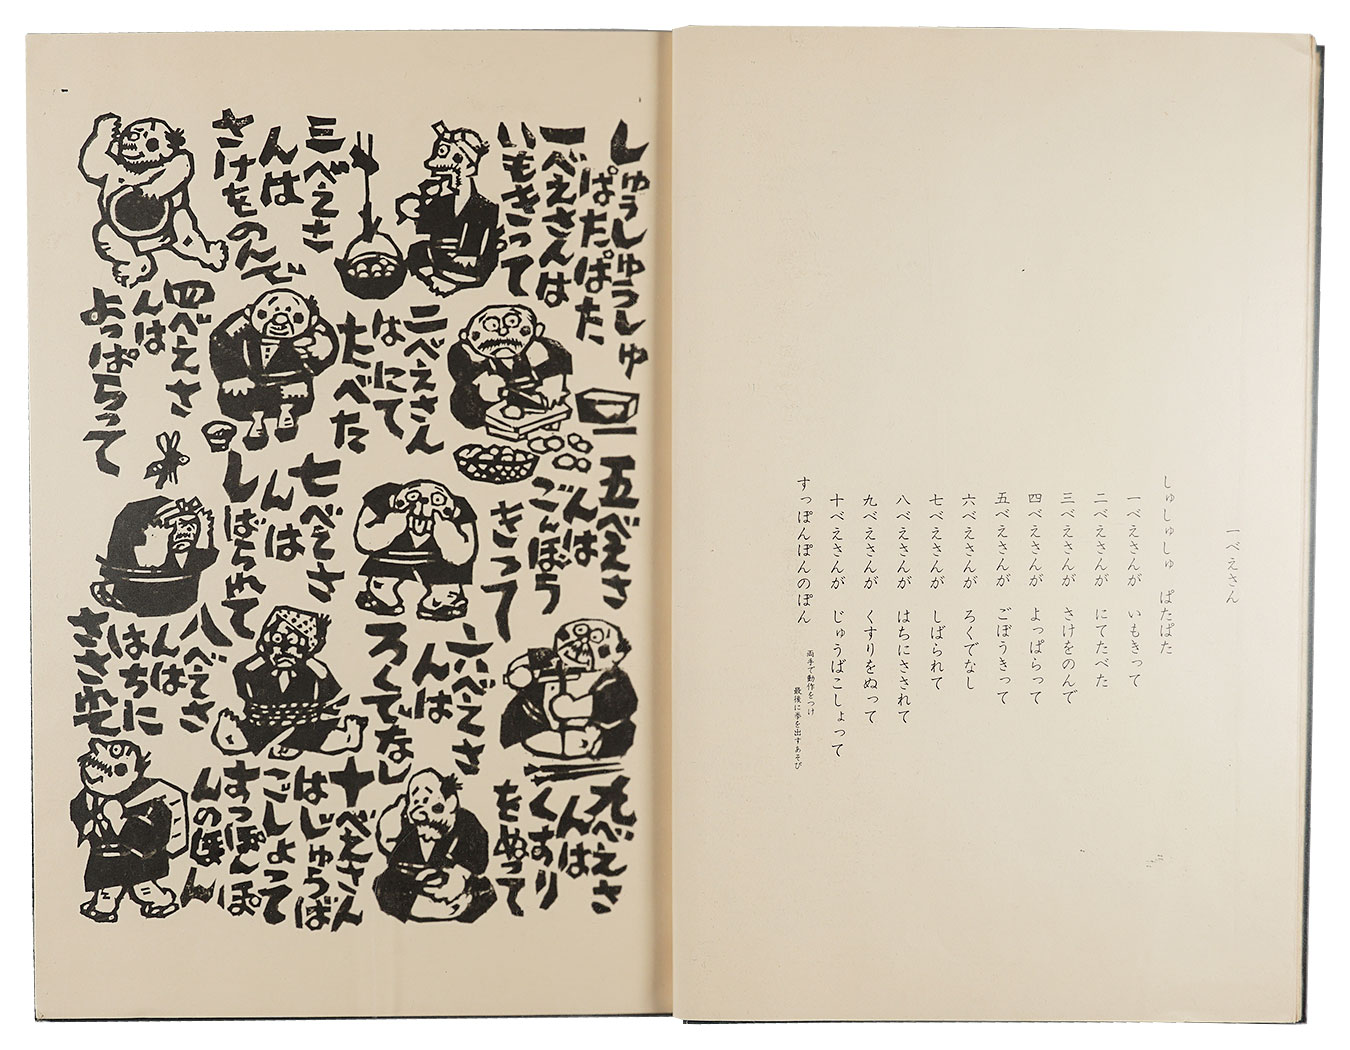 一べえさん
しゅしゅしゅ ぱたぱた
一べえさんが いもきって
二べえさんが にてたべた
三べえさんが さけをのんで
四べえさんが よっぱらって
五べえさんが ごぼうきって
六べえさんが ろくでなし
七べえさんが しばられて
八べえさんが はちにさされて
九べえさんが くすりをぬって
十べえさんが じゅうばこしょって
すっぽんぽんのぽん
両手で動作をつけ
最後に拳を出すあそび
しゅうしゅうしゅ
ぱたぱた
一べえさんは
いもきって
二べえさん
はにて
たべた
三べえさ
んは
さけをのんで
四べえさ
んは
よっぱらって
五べえさ
んは
ごんぼう
きって
六べえさ
んは
ろくでなし
七べえさ
んは
しばられて
八べえさ
んは
はちに
ささせ
九べえさ
んは
くすり
をぬって
十べえさん
はじゅうば
こしょって
すっぽんぽ
んのぽん